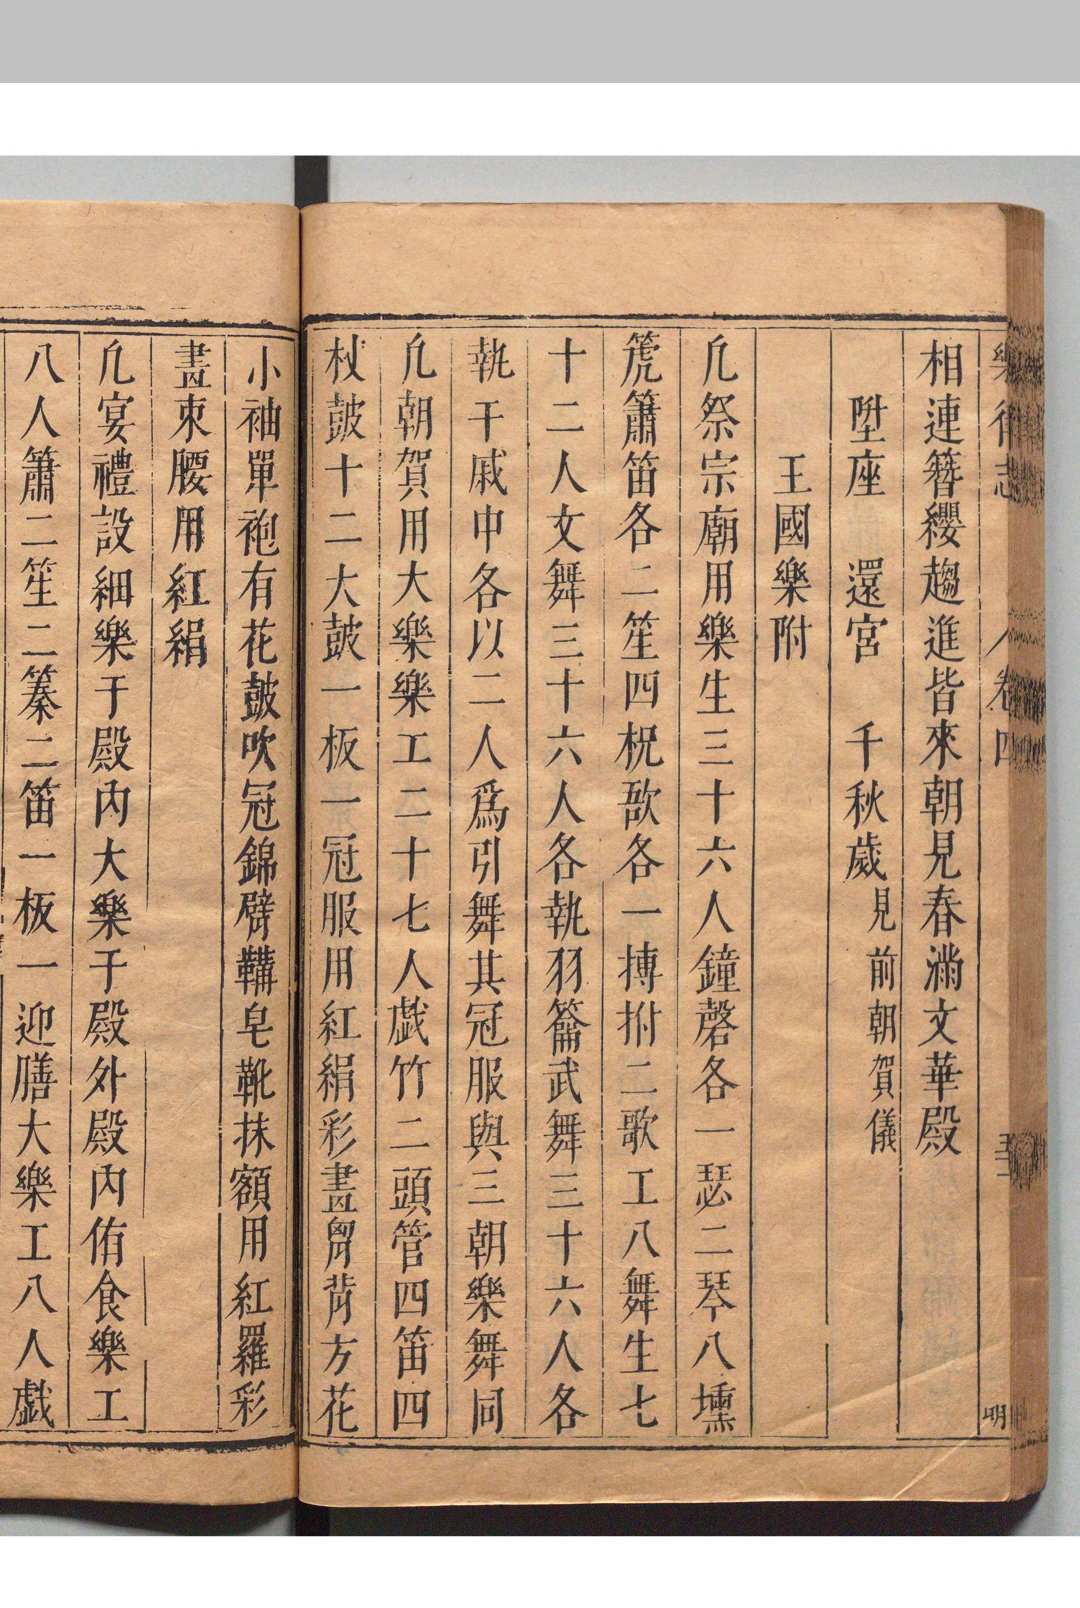 樂律志 卷四
相連簪纓趨進皆來朝見春滿文華殿
陞座 還宮 千秋歲見前朝賀儀
王國樂附
凢祭宗廟用樂生三十六人鐘磬各一瑟二琴八壎
箎簫笛各二笙四柷敔各一搏拊二歌工八舞生七
十二人文舞三十六人各執羽籥武舞三十六人各
執干戚中各以二人爲引舞其冠服與三朝樂舞同
凢朝賀用大樂樂工二十七人戯竹二頭管四笛四
杖鼓十二大鼓一板一冠服用紅絹彩畫胷背方花
小袖單袍有花鼓吹冠錦臂韝皂靴抹額用紅羅彩
畫束腰用紅絹
凢宴禮設細樂于殿內大樂于殿外殿內侑食樂工
八人簫二笙二纂二笛一板一迎膳大樂工八人戯